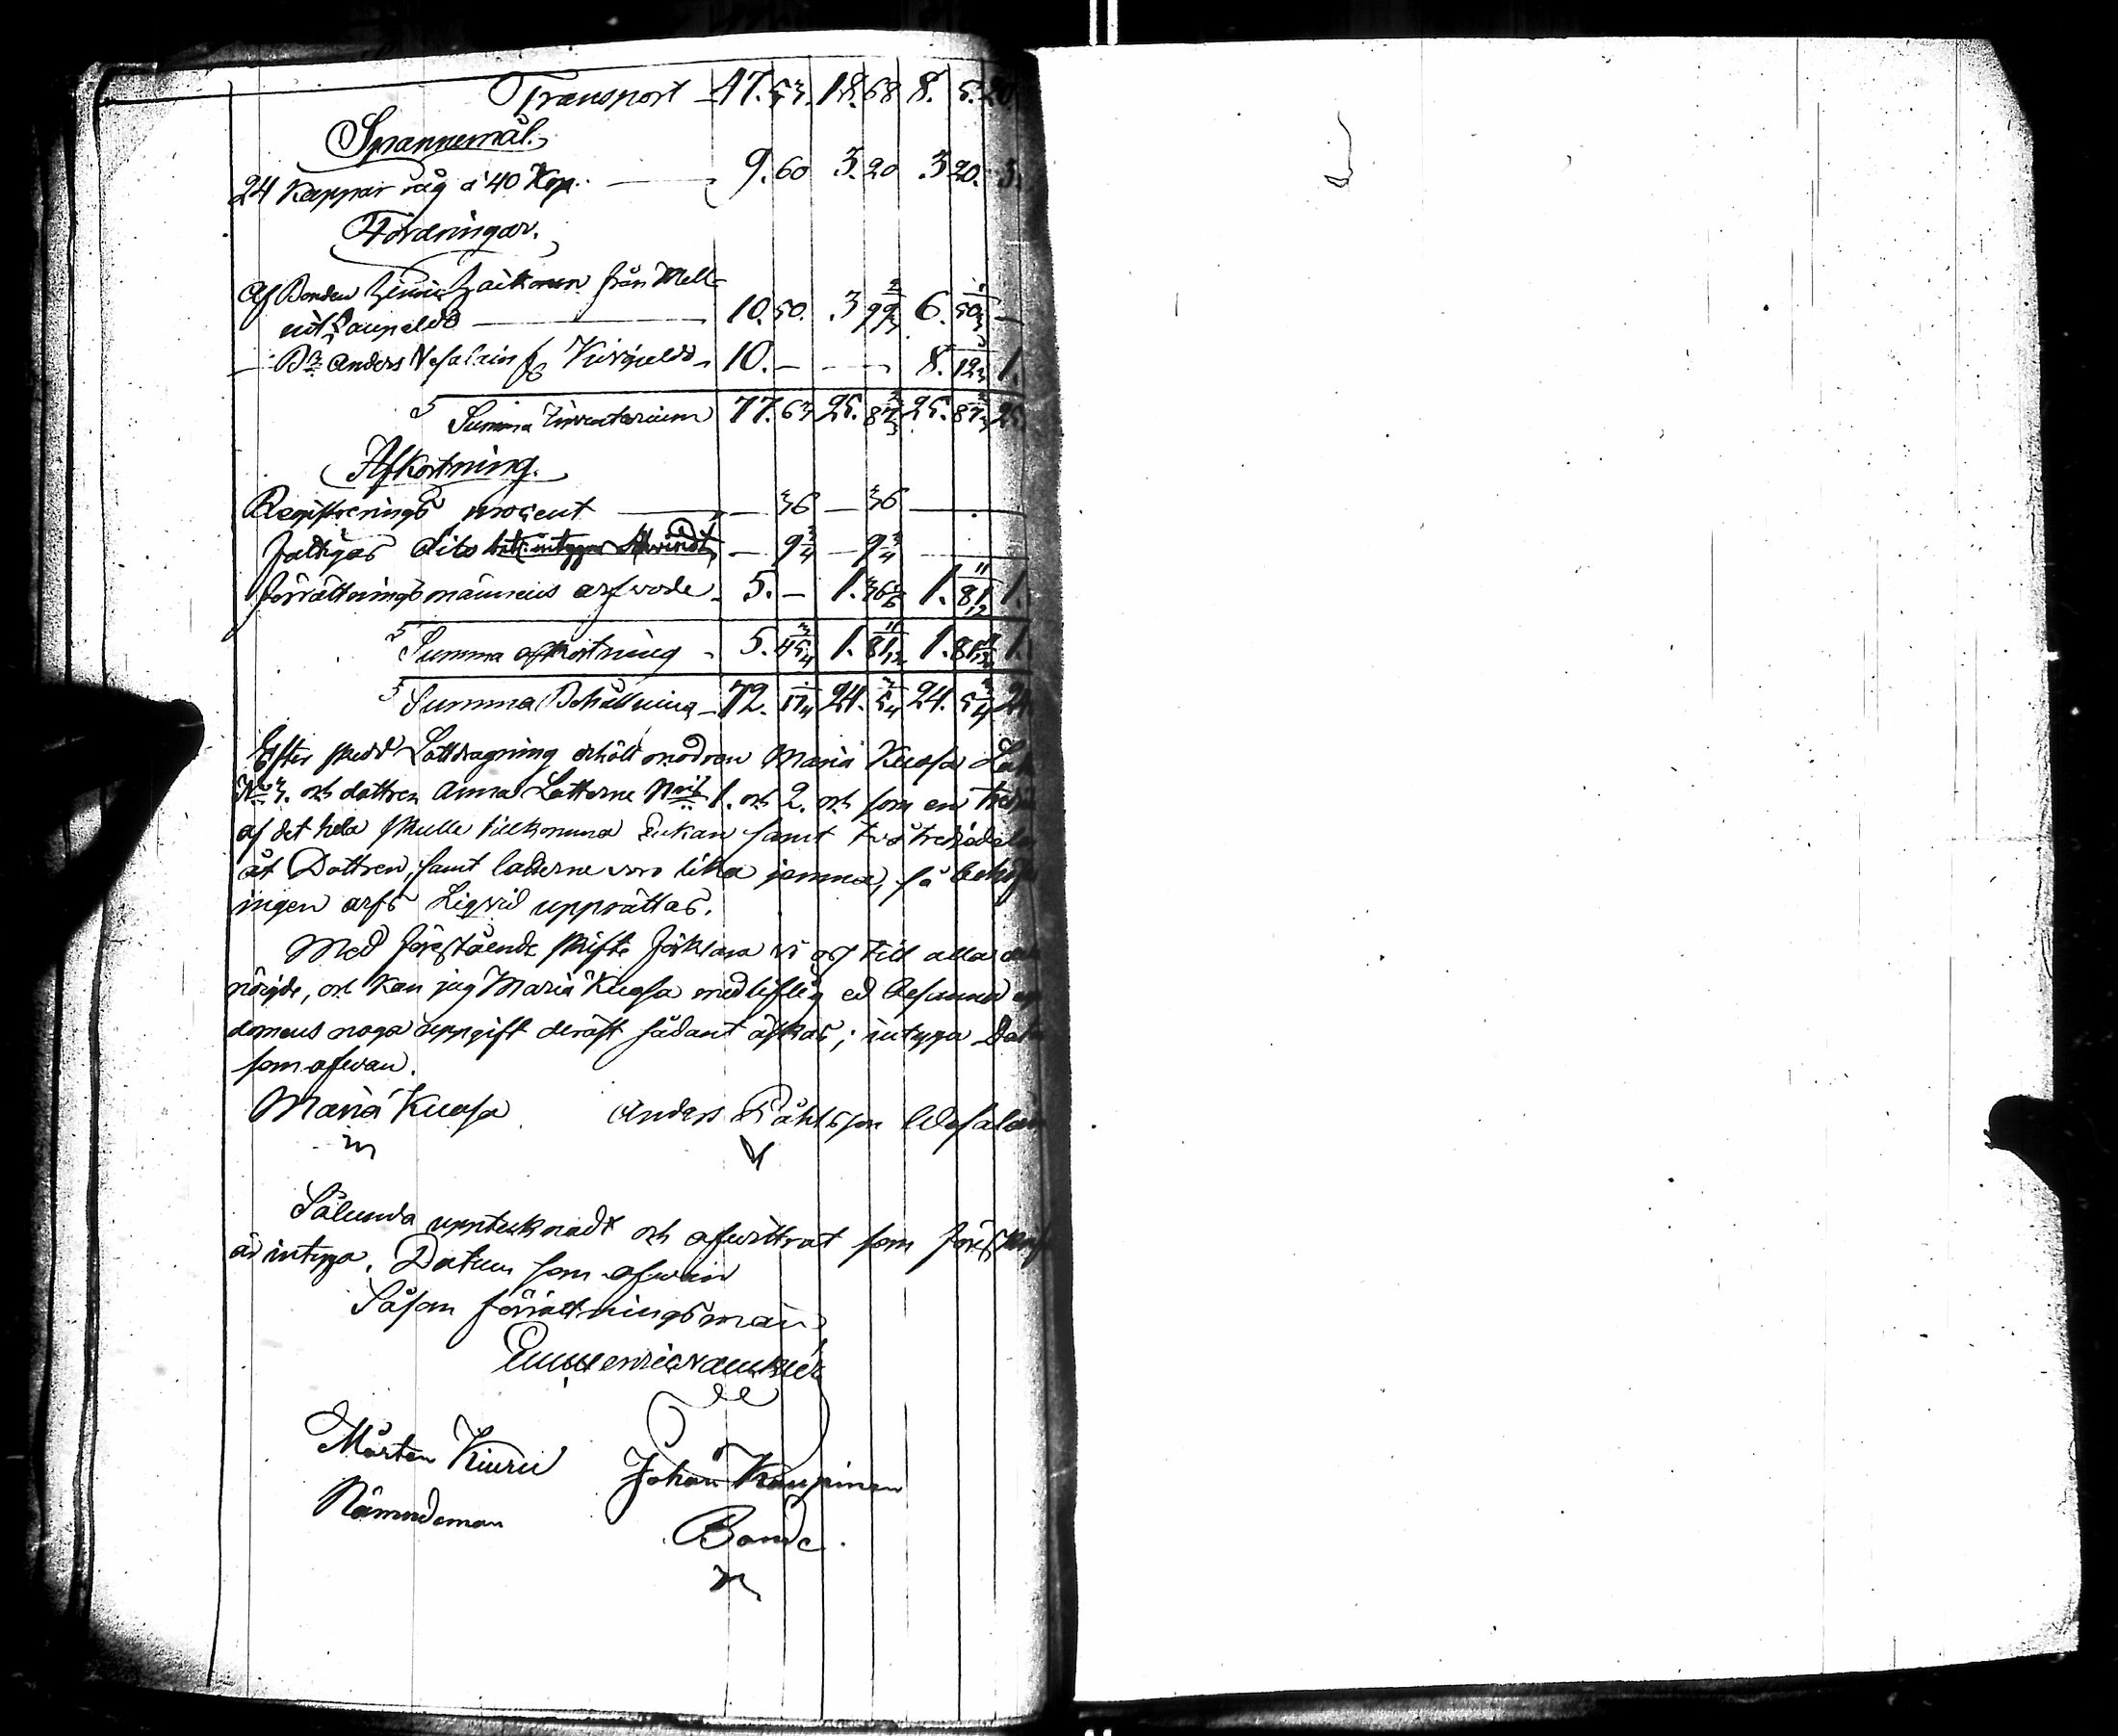 Transport 47.53. 18.68 8. 5. 20
Spannemål.
24 Kappar råg a' 40 Kop. 9.60 3.20 3 20. 3.
Fordringar.
Af Bonden från Mell-
10.50. 3 99 2/3 6. 50 1/3 —
— Dn Anders Vesalain 10. — — 8. 12 2/3 1.
Summa Inventarium 77.63 25. 87 2/3 25. 87 2/3 25.
Afkortning.
Registrerings procent — 36 — 36 —
fattigas dito — 9 3/4 — 9 3/4 —
förrättningsmännens arfvode 5. — 1. 36 1. 81 11/12 1.
Summa afkortning 5. 45 3/4 1. 81 11/12 1. 81 11/12 1.
Summa Behållning 72. 17 1/4 24. 5 3/4 24. 5 3/4 24.
Efter skedd Lottdragning erhölt modren Maria Kuosa Lott
No 3. och dottren Anna Lotterne No 1. och 2. och som en tredje
af det hela skulle tillkomma Enkan samt två tredjedelar
åt Dottren, samt lotterne voro lika jemna, så behöfs
ingen arfs Liqvid upprättas.
Med förestående skifte förklara vi oss till alla delar
nöigde, och kan jag Maria Kuosa med liflig ed besanna
domens noga uppgift deräst sådant äskas; intyga Datum
som ofwan.
Maria Kuosa Anders Påhlsson Wesalain
Sålunda upptecknadt och afwittrat som föreskrifvit
är intyga. Datum som ofwan
Såsom förrättningsmän
Mårten Kiuru Johan Kaupinen
Nämndeman Bonde.